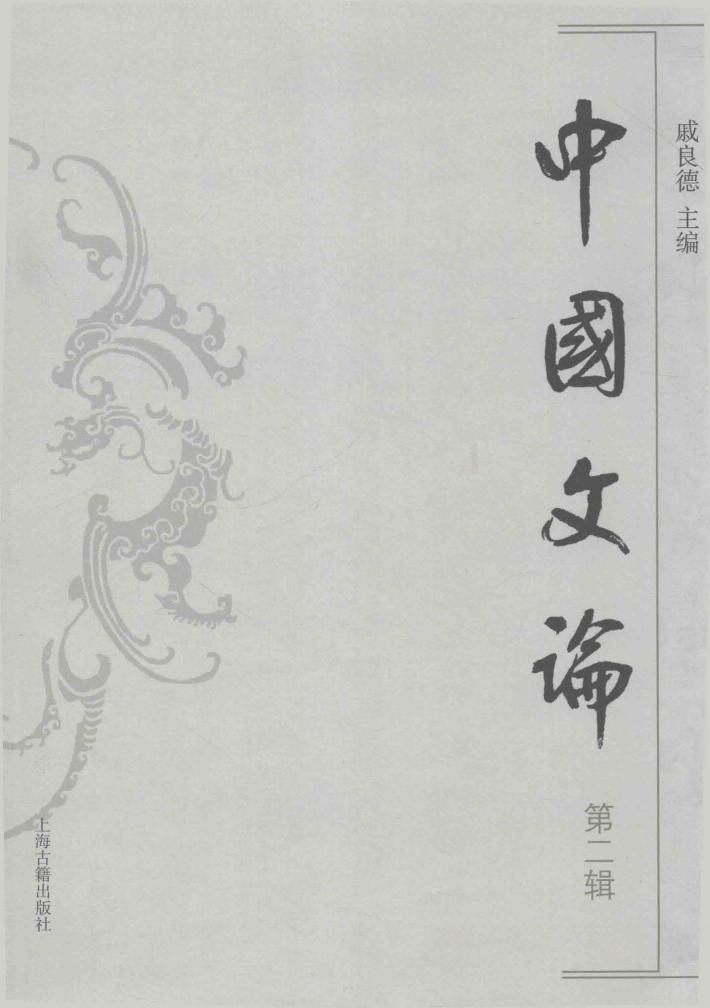 戚良德 主编
中國文論
第二辑
上海古籍出版社